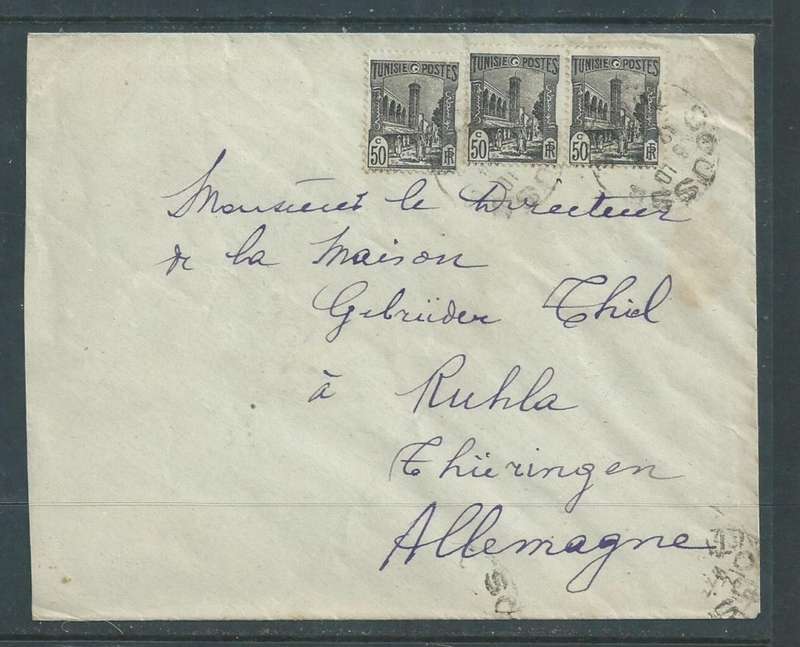 TUNISIE POSTES TUNISIE POSTES TUNISIE POSTES
c 50 RF c 50 RF c 50 RF
SOUSS
Monsieur le Directeur
de la Maison
Gebrüder Thiel
à Ruhla
Thüringen
Allemagne